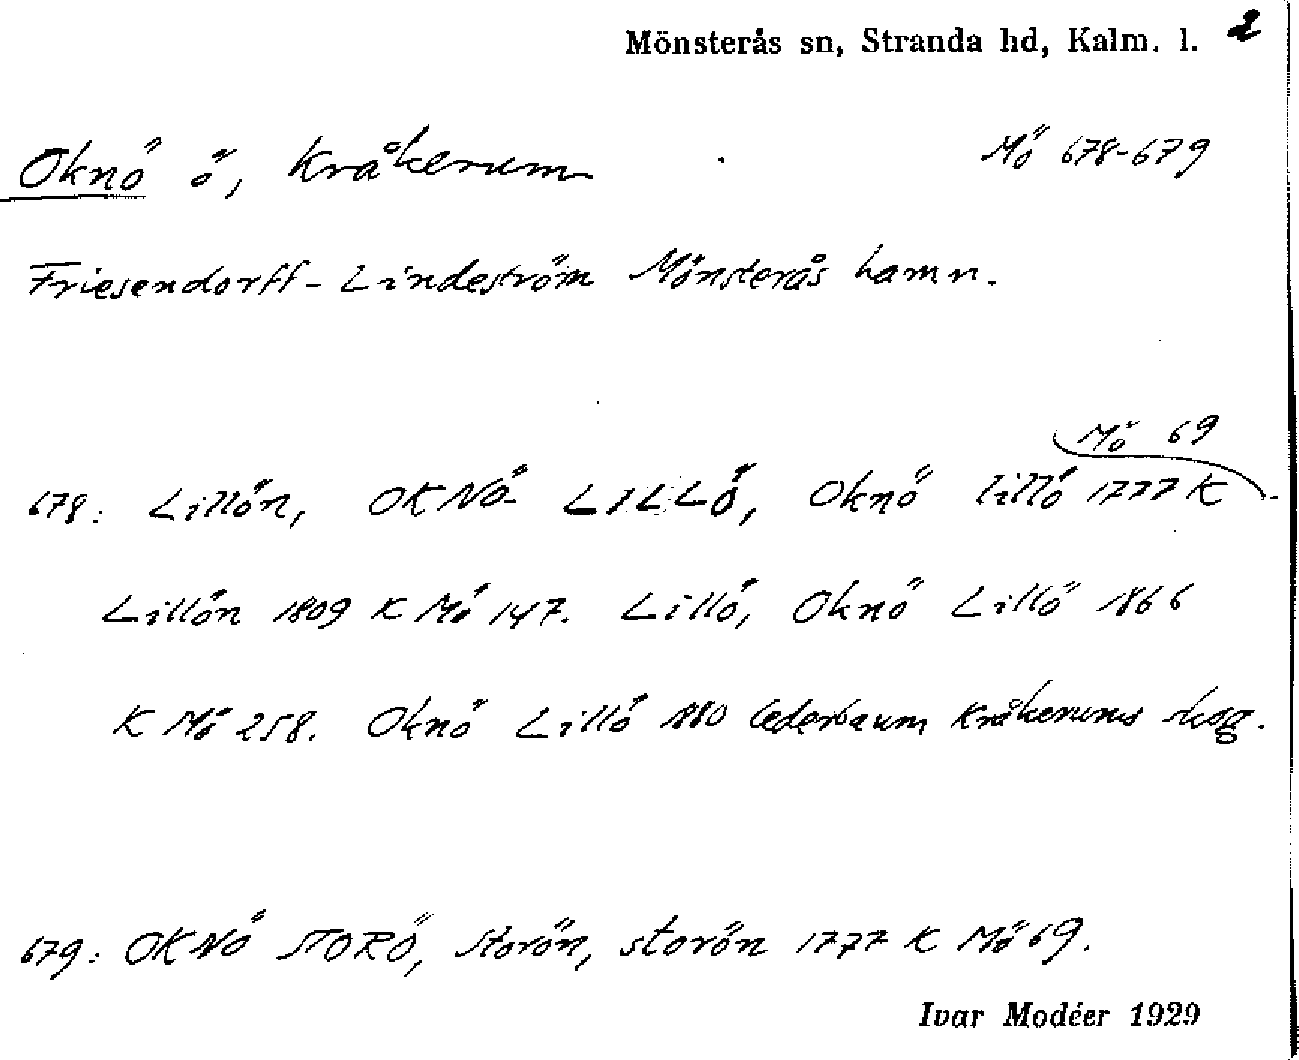 Mönsterås sn, Stranda hd, Kalm. l. 2
Oknö ö, Kråkerum Mö 678-679
Friesendorff - Lindeström Mönsterås hamn.
Mö 69
678: Lillön, OKNÖ LILLÖ, Oknö lillö 1777 K
Lillön 1809 K Mö 147. Lillö, Oknö Lillö 1866
K Mö 258. Oknö Lillö 1880 Cederbaum Kråkerums skog.
679: OKNÖ STORÖ, Storön, storön 1777 K Mö 69.
Ivar Modéer 1929